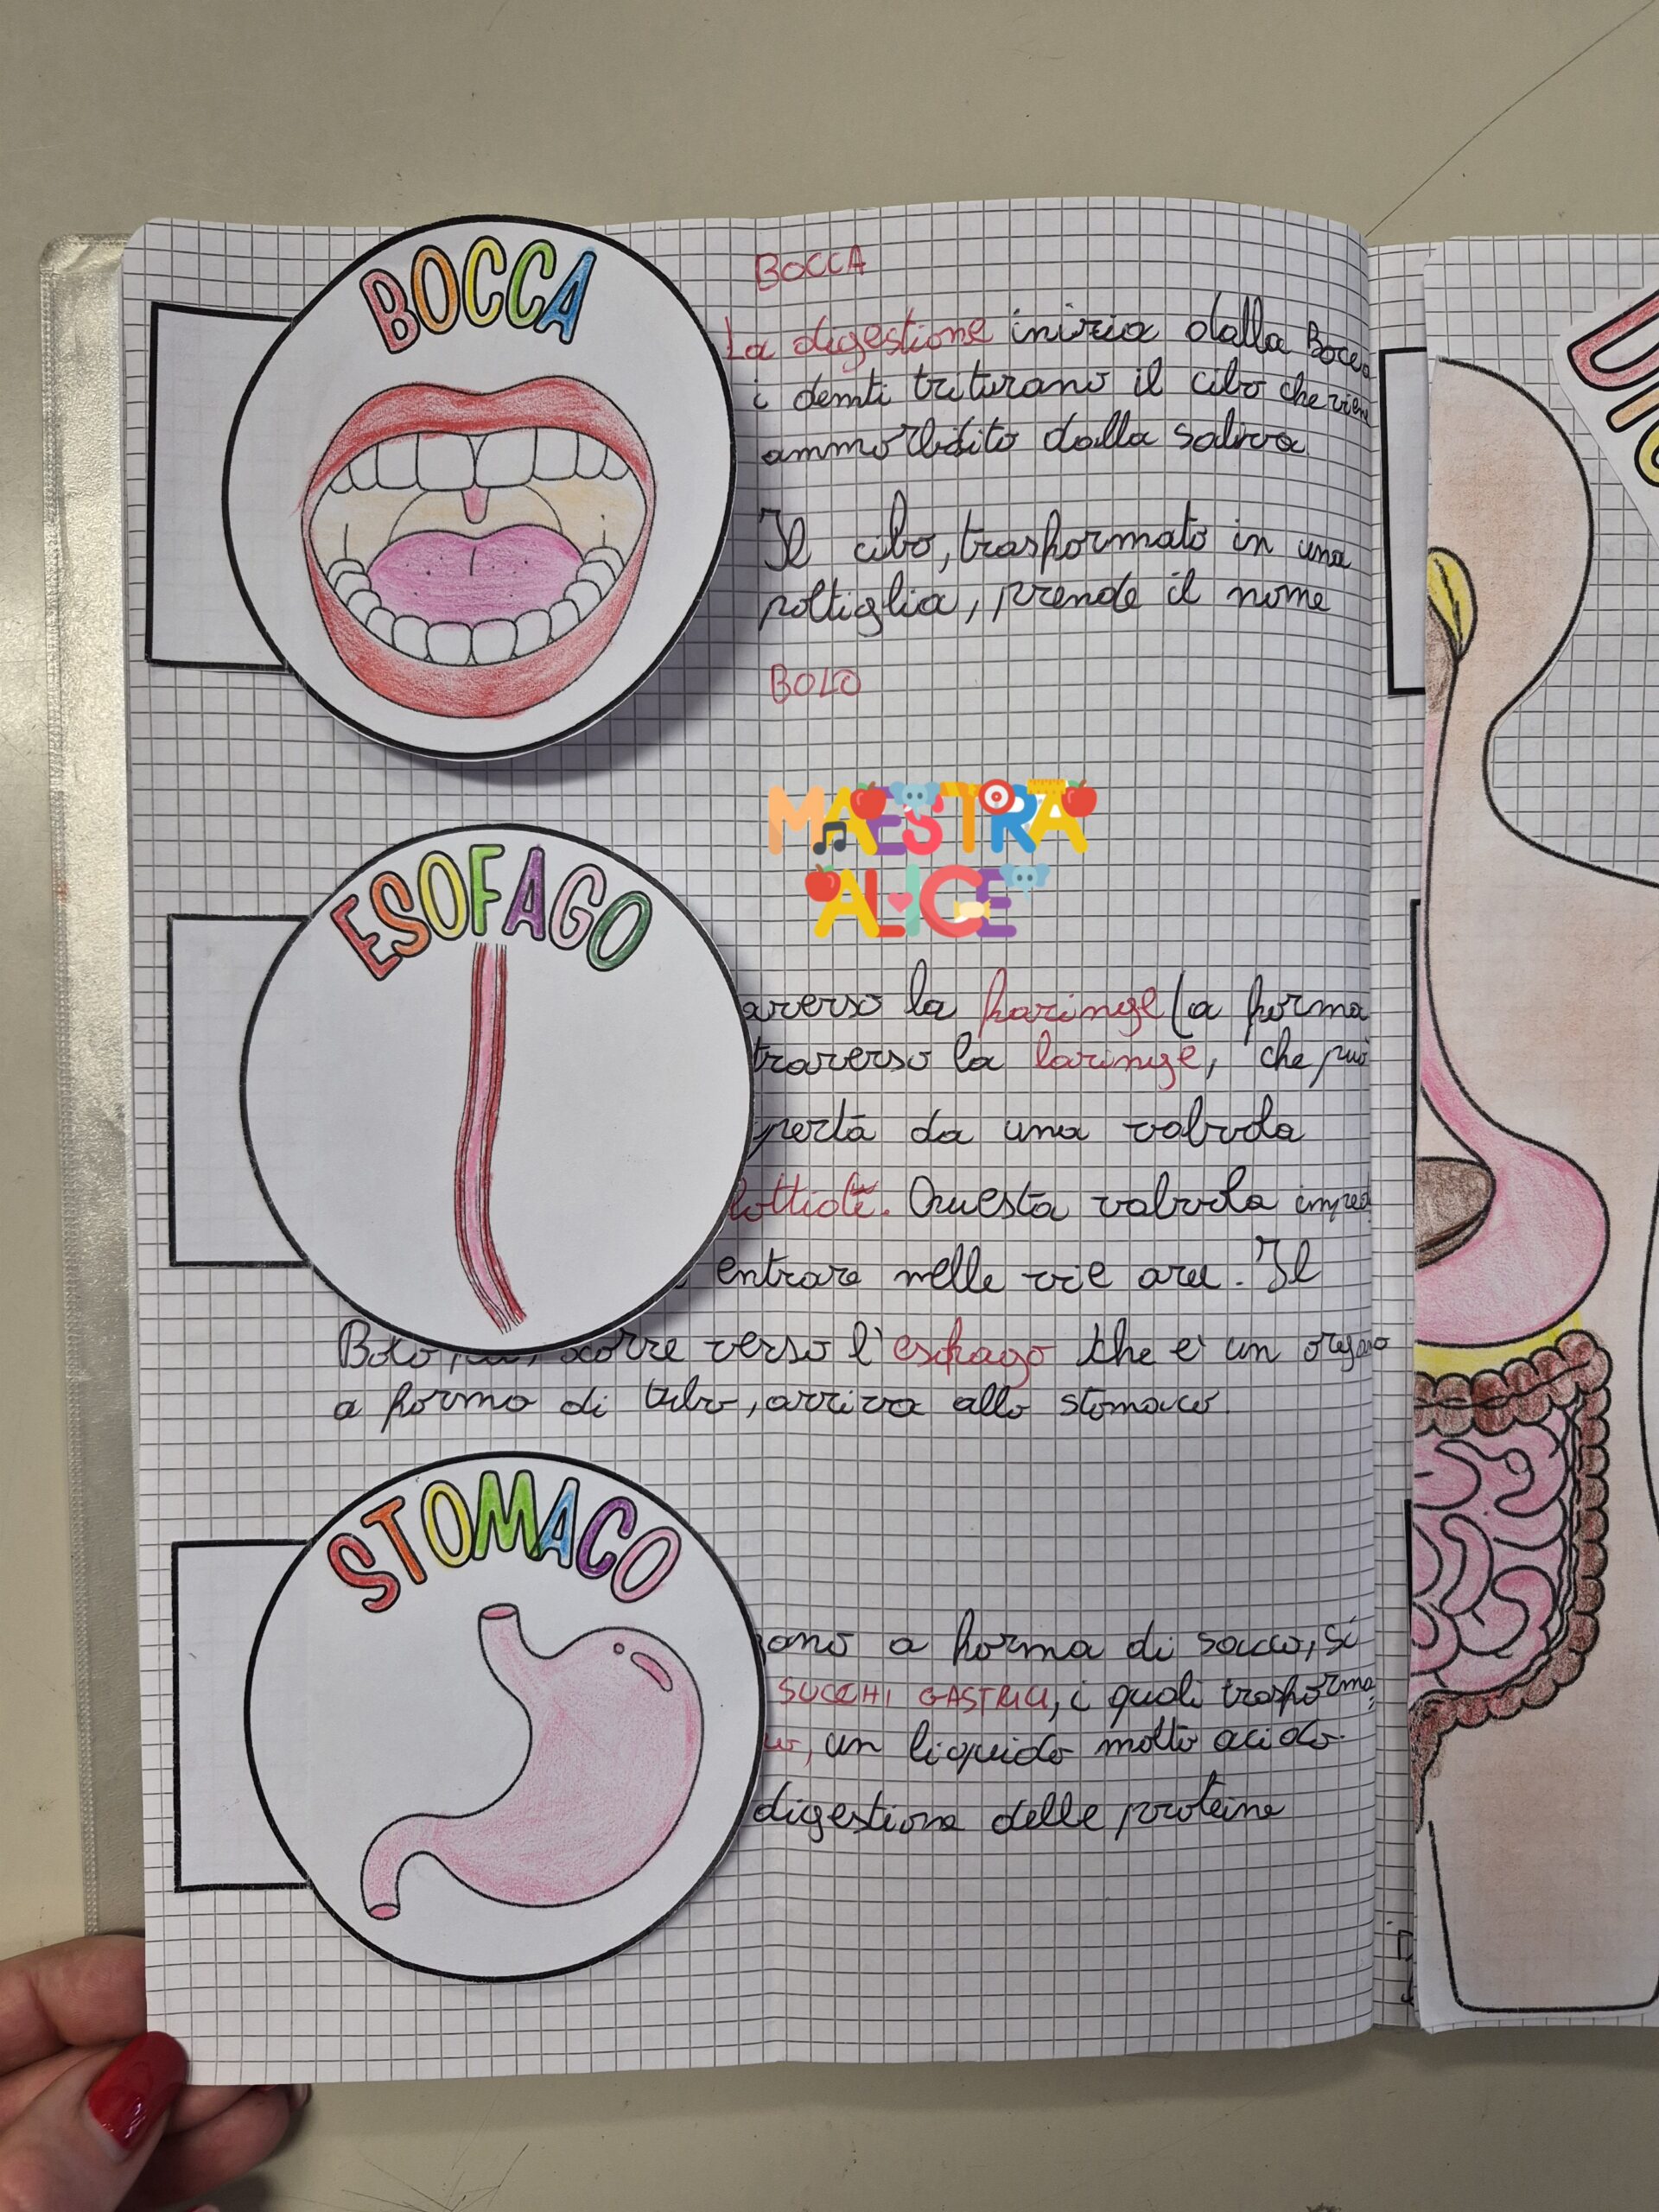 BOCCA
BOCCA
La digestione inizia dalla Bocca
i denti triturano il cibo che viene
ammorbidito dalla saliva
Il cibo, trasformato in una
poltiglia, prende il nome
BOLO
MAESTRA
ALICE
ESOFAGO
averso la faringe (a forma
traverso la laringe, che può
perta da una valvola
lottide. Questa valvola imped
entrare nelle vie aree. Il
Bolo scorre verso l'esofago che è un organo
a forma di tubo, arriva allo stomaco.
STOMACO
ano a forma di sacco, si
SUCCHI GASTRICI, i quali trasforma
un liquido molto acido.
digestione delle proteine
DIG